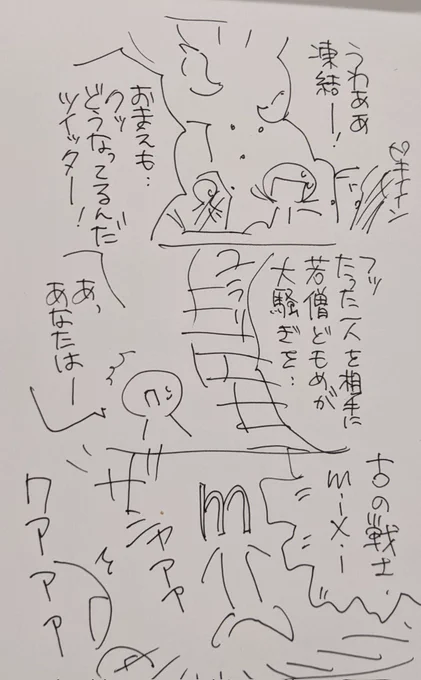 うわぁぁ
凍結ー!
おまえも‥
クッ
どうなってるんだ
ツイッター!
フッ
たった一人を相手に
若僧どもめが
大騒ぎを‥
ユラリ
あっ
あなたはー
古の戦士
mixi
m
ザシャアァ
ワアアアア